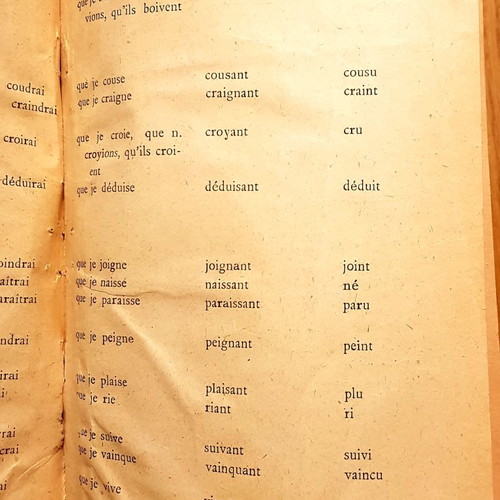 vions, qu'ils boivent
coudrai que je couse cousant cousu
craindrai que je craigne craignant craint
croirai que je croie, que n. croyant cru
croyions, qu'ils croi-
ent
déduirai que je déduise déduisant déduit
oindrai que je joigne joignant joint
aîtrai que je naisse naissant né
araîtrai que je paraisse paraissant paru
indrai que je peigne peignant peint
irai que je plaise plaisant plu
je rie riant ri
rai je suive suivant suivi
crai je vainque vainquant vaincu
que je vive